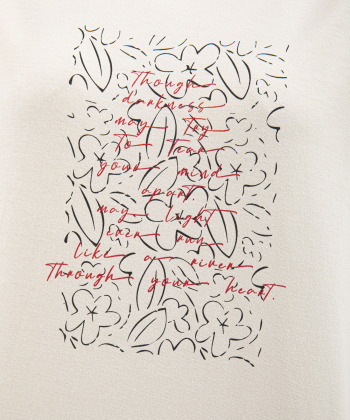 Though
darkness
may try
to tear
your mind
apart
may light
ever run
like a river
Through your heart.